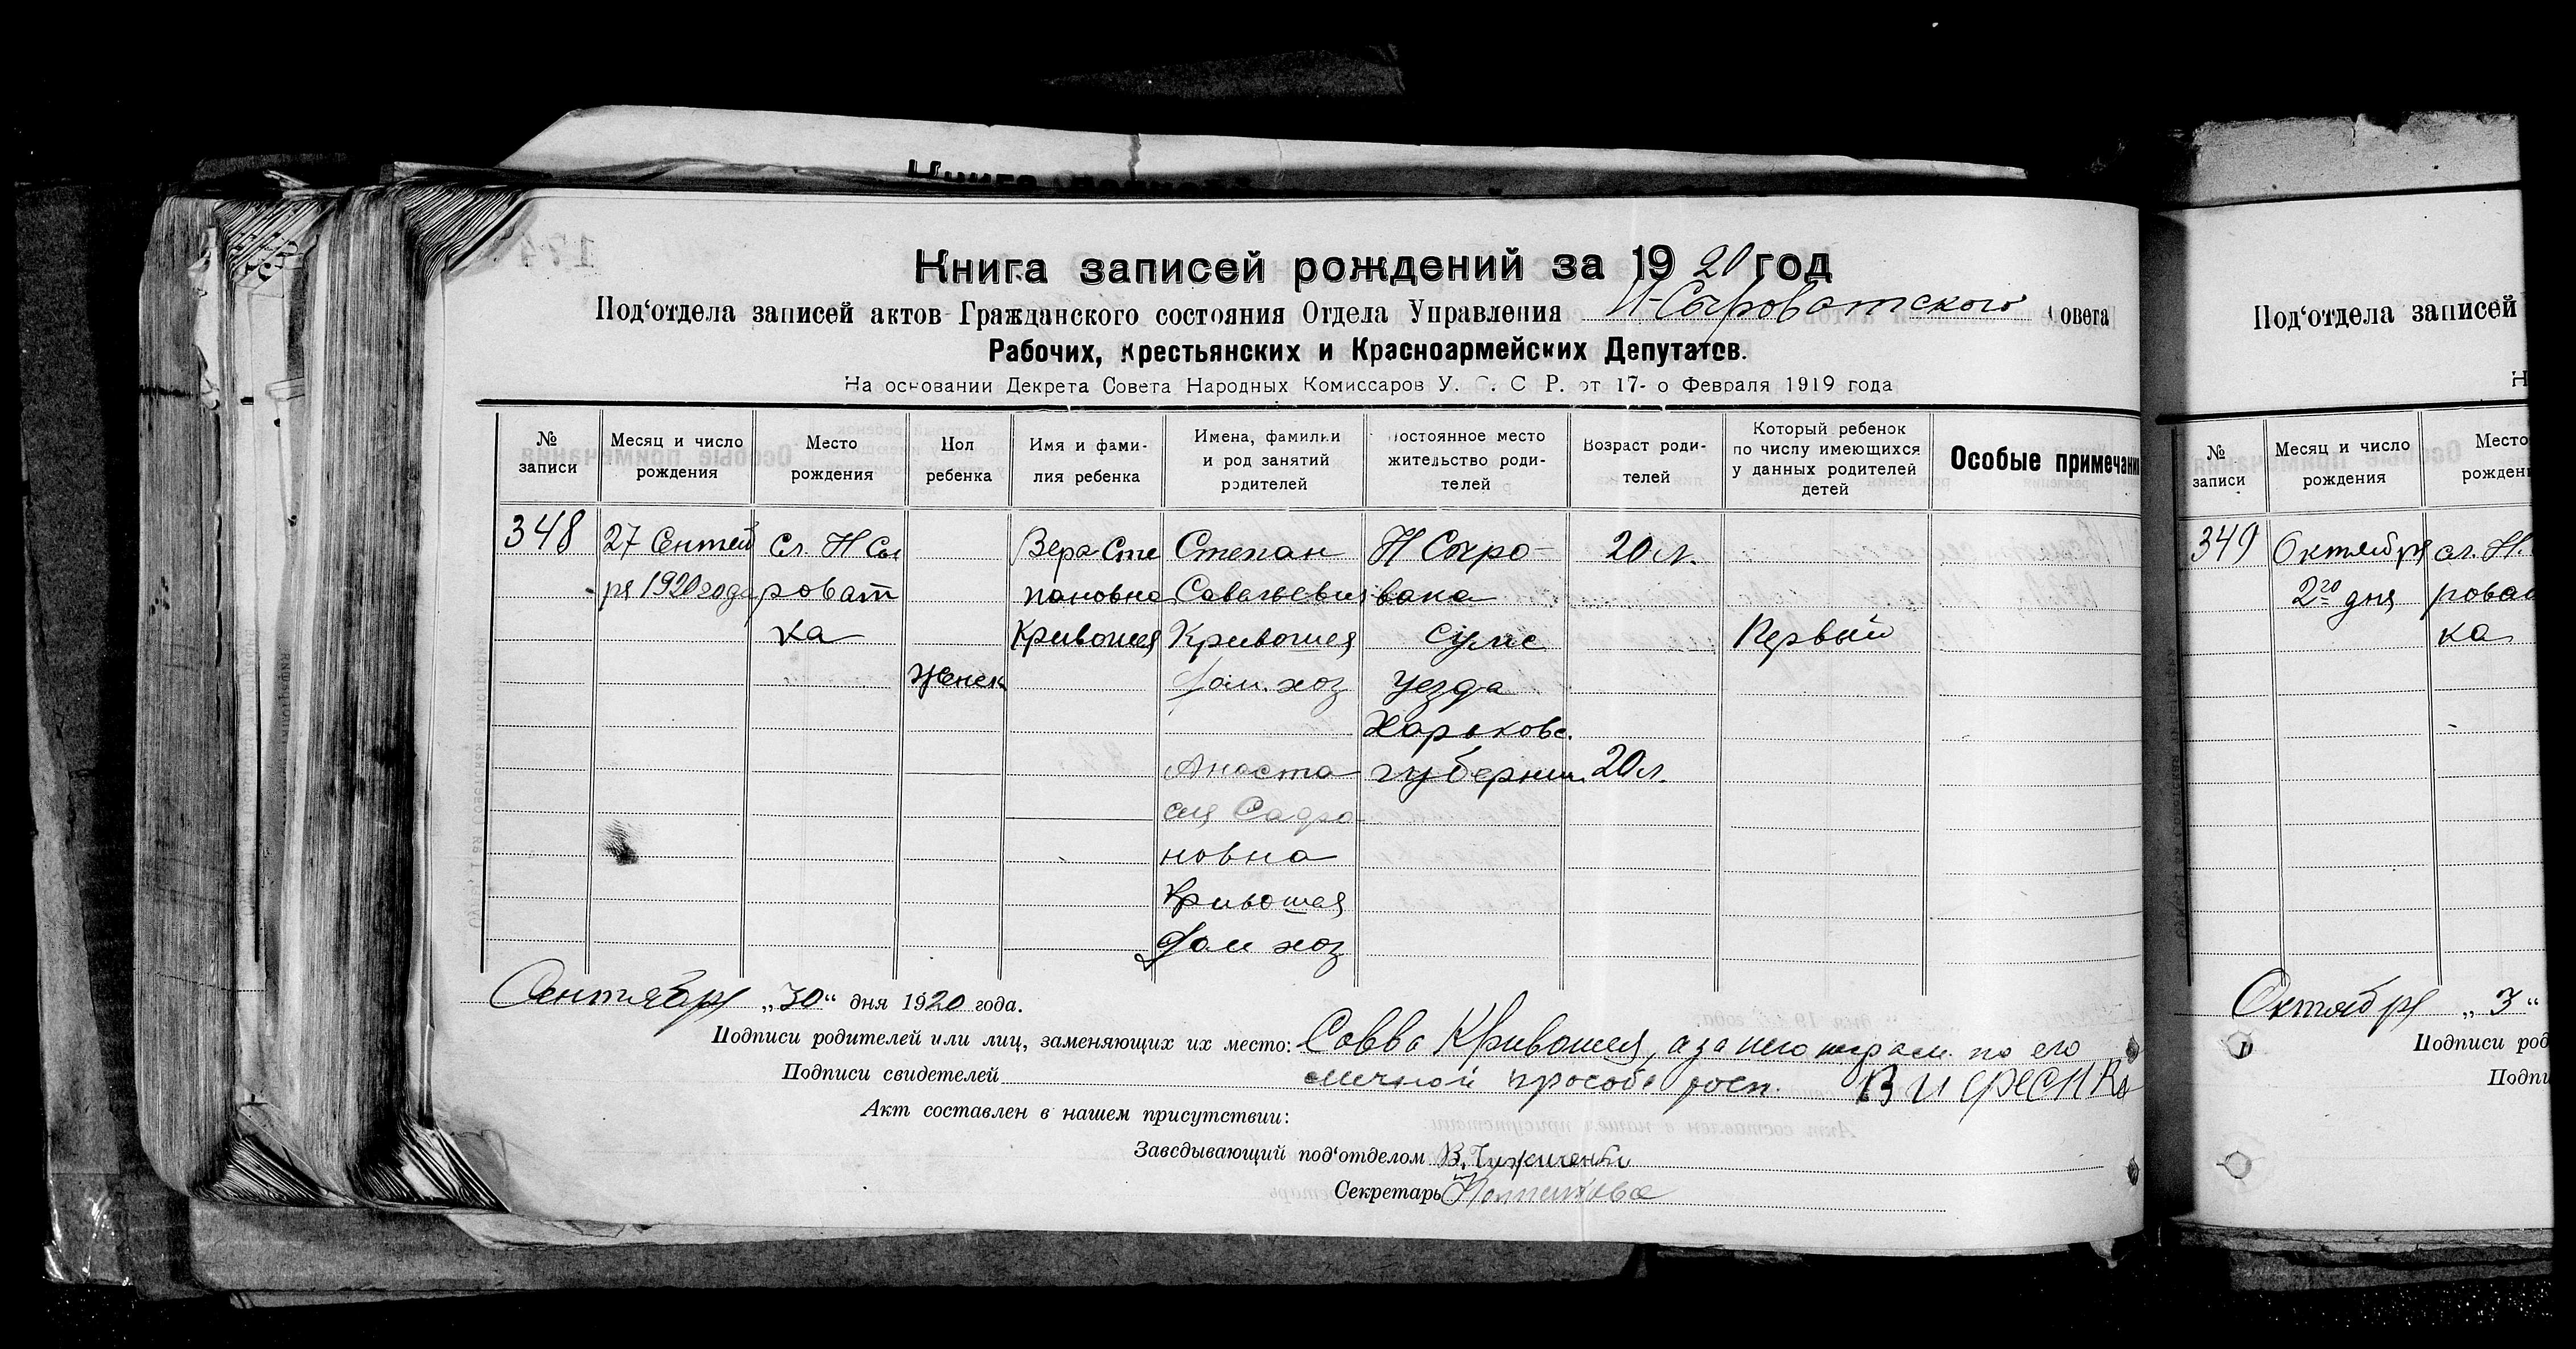 Книга записей рождений за 1920 год
Под'отдела записей актов Гражданского состояния Отдела Управления Н-Сыроватского Совета
Рабочих, Крестьянских и Красноармейских Депутатов.
На основании Декрета Совета Народных Комиссаров У. С. С. Р. от 17-о Февраля 1919 года
№ записи
Месяц и число рождения
Место рождения
Пол ребенка
Имя и фами-
лия ребенка
Имена, фамилии
и род занятий
родителей
Постоянное место
жительство роди-
телей
Возраст роди-
телей
Который ребенок
по числу имеющихся
у данных родителей
детей
Особые примечани
348
27 Сентяб
ря 1920 года
Сл. Н Сы
роват
ка
Женск
Вера Сте
пановна
Кривошея
Степан
Савельевич
Кривошея
дом. хоз
Анаста
сия Садро
новна
Кривошея
Дом хоз
Н Сыро-
вака
Сумс
уезда
Харьковс.
губернии
20 л.
20 л.
Первый
Сентября „30“ дня 1920 года.
Подписи родителей или лиц, заменяющих их место: Савва Кривошея, а за него неграм. по его
Подписи свидетелей личной просьбе росп.
Акт составлен в нашем присутствии:
Заведывающий под'отделом В.
Секретарь
Под'отдела записей
№ записи
Месяц и число рождения
Место
рожден
349
Октября
2го дня
сл. Н.
ровас
ка
Октября „3“
Подписи род
Подпи